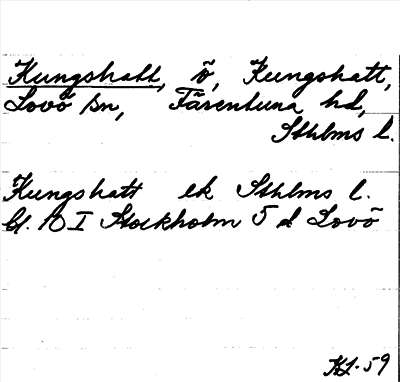 Kungshatt, ö, Kungshatt,
Lovö sn, Färentuna hd,
Sthlms l.
Kungshatt ek Sthlms l.
bl. 10 I Stockholm 5 d Lovö
59